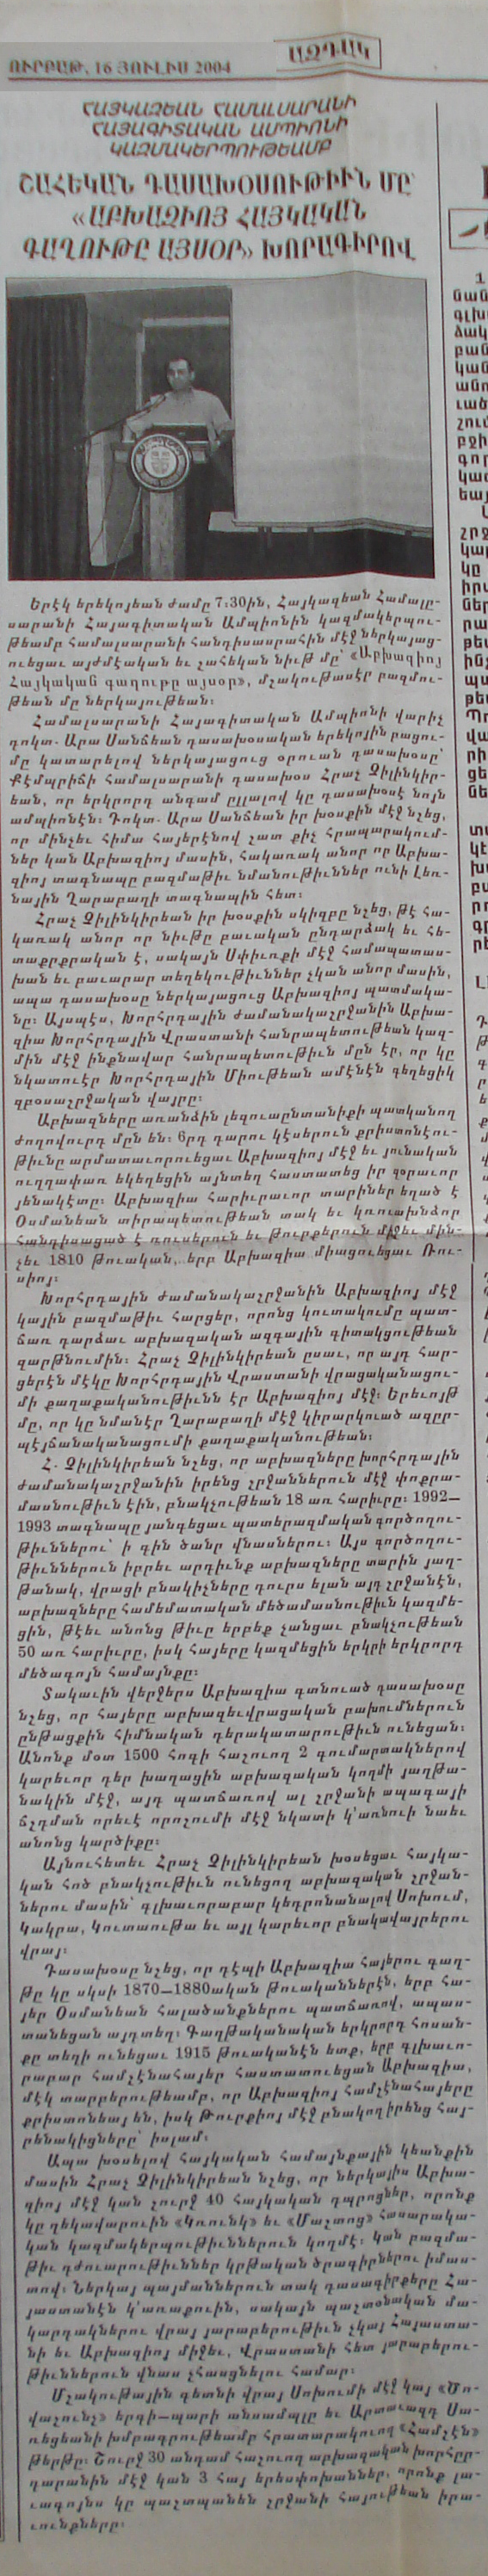 ՈՒՐԲԱԹ, 16 ՅՈՒԼԻՍ 2004
ԱԶԴԱԿ
ՀԱՅԿԱԶԵԱՆ ՀԱՄԱԼՍԱՐԱՆԻ
ՀԱՅԱԳԻՏԱԿԱՆ ԱՄՊԻՈՆԻ
ԿԱԶՄԱԿԵՐՊՈՒԹԵԱՄԲ
ՇԱՀԵԿԱՆ ԴԱՍԱԽՕՍՈՒԹԻՒՆ ՄԸ
«ԱԲԽԱԶԻՈՅ ՀԱՅԿԱԿԱՆ
ԳԱՂՈՒԹԸ ԱՅՍՕՐ» ԽՈՐԱԳԻՐՈՎ
Երէկ երեկոյեան ժամը 7:30ին, Հայկազեան Համալը-
սարանի Հայագիտական Ամպիոնին կազմակերպու-
թեամբ համալսարանի հանդիսասրահին մէջ ներկայաց-
ուեցաւ այժմէական եւ շահեկան նիւթ մը՝ «Աբխազիոյ
Հայկական գաղութը այսօր», մշակութասէր բազմու-
թեան մը ներկայութեան:
Համալսարանի Հայագիտական Ամպիոնի վարիչ
դոկտ. Արա Սանճեան դասախօսական երեկոյին բացու-
մը կատարելով ներկայացուց օրուան դասախօսը՝
Քէմպրիճի համալսարանի դասախօս Հրաչ Չիլինկիր-
եան, որ երկրորդ անգամ ըլլալով կը դասախօսէ նոյն
ամպիոնէն: Դոկտ. Արա Սանճեան իր խօսքին մէջ նշեց,
որ մինչեւ հիմա հայերէնով շատ քիչ հրապարակում-
ներ կան Աբխազիոյ մասին, հակառակ անոր որ Աբխա-
զիոյ տագնապը բազմաթիւ նմանութիւններ ունի Լեռ-
նային Ղարաբաղի տագնապին հետ:
Հրաչ Չիլինկիրեան իր խօսքին սկիզբը նշեց, թէ հա-
կառակ անոր որ նիւթը բաւական ընդարձակ եւ հե-
տաքրքրական է, սակայն Սփիւռքի մէջ համապատաս-
խան եւ բաւարար տեղեկութիւններ չկան անոր մասին,
ապա դասախօսը ներկայացուց Աբխազիոյ պատմակա-
նը: Այսպէս, Խորհրդային ժամանակաշրջանին Աբխա-
զիա Խորհրդային Վրաստանի հանրապետութեան կազ-
մին մէջ ինքնավար հանրապետութիւն մըն էր, որ կը
նկատուէր Խորհրդային Միութեան ամէնէն գեղեցիկ
զբօսաշրջական վայրը:
Աբխազները առանձին լեզուաընտանիքի պատկանող
ժողովուրդ մըն են: 6րդ դարու կէսերուն քրիստոնէու-
թիւնը արմատաւորուեցաւ Աբխազիոյ մէջ եւ յունական
ուղղափառ եկեղեցին այնտեղ հաստատեց իր զօրաւոր
յենակէտը: Աբխազիա հարիւրաւոր տարիներ եղած է
Օսմանեան տիրապետութեան տակ եւ կռուախնձոր
հանդիսացած է ռուսերուն եւ թուրքերուն միջեւ մին-
չեւ 1810 թուական, երբ Աբխազիա միացուեցաւ Ռու-
սիոյ:
Խորհրդային ժամանակաշրջանին Աբխազիոյ մէջ
կային բազմաթիւ հարցեր, որոնց կուտակումը պատ-
ճառ դարձաւ աբխազական ազգային գիտակցութեան
զարթնումին: Հրաչ Չիլինկիրեան ըսաւ, որ այդ հար-
ցերէն մէկը Խորհրդային Վրաստանի վրացականացու-
մի քաղաքականութիւնն էր Աբխազիոյ մէջ: Երեւոյթ
մը, որ կը նմանէր Ղարաբաղի մէջ կիրարկուած ազըր-
պէյճանականացումի քաղաքականութեան:
Հ. Չիլինկիրեան նշեց, որ աբխազները խորհրդային
ժամանակաշրջանին իրենց շրջաններուն մէջ փոքրա-
մասնութիւն էին, բնակչութեան 18 առ հարիւրը: 1992—
1993 տագնապը յանգեցաւ պատերազմական գործողու-
թիւններու՝ ի գին ծանր վնասներու: Այս գործողու-
թիւններուն իբրեւ արդիւնք աբխազները տարին յաղ-
թանակ, վրացի բնակիչները դուրս ելան այդ շրջանէն,
աբխազները համեմատական մեծամասնութիւն կազմե-
ցին, թէեւ անոնց թիւը երբեք չանցաւ բնակչութեան
50 առ հարիւրը, իսկ հայերը կազմեցին երկրի երկրորդ
մեծագոյն համայնքը:
Տակաւին վերջերս Աբխազիա գտնուած դասախօսը
նշեց, որ հայերը աբխազեւվրացական բախումներուն
ընթացքին հիմնական դերակատարութիւն ունեցան:
Անոնք մօտ 1500 հոգի հաշուող 2 գումարտակներով
կարեւոր դեր խաղացին աբխազական կողմի յաղթա-
նակին մէջ, այդ պատճառով ալ շրջանի ապագայի
ճշդման որեւէ որոշումի մէջ նկատի կ'առնուի նաեւ
անոնց կարծիքը:
Այնուհետեւ Հրաչ Չիլինկիրեան խօսեցաւ հայկա-
կան հոծ բնակչութիւն ունեցող աբխազական շրջան-
ներու մասին՝ գլխաւորաբար կեդրոնանալով Սոխում,
Կակրա, Կուտաութա եւ այլ կարեւոր բնակավայրերու
վրայ:
Դասախօսը նշեց, որ դէպի Աբխազիա հայերու գաղ-
թը կը սկսի 1870—1880ական թուականներէն, երբ հա-
յեր Օսմանեան հալածանքներու պատճառով, ապաս-
տանեցան այդտեղ: Գաղթականական երկրորդ հոսան-
քը տեղի ունեցաւ 1915 թուականէն ետք, երբ գլխաւո-
րաբար համշէնահայեր հաստատուեցան Աբխազիա,
մէկ տարբերութեամբ, որ Աբխազիոյ համշէնահայերը
քրիստոնեայ են, իսկ Թուրքիոյ մէջ բնակող իրենց հայ-
րենակիցները՝ իսլամ:
Ապա խօսելով հայկական համայնքային կեանքին
մասին Հրաչ Չիլինկիրեան նշեց, որ ներկայիս Աբխա-
զիոյ մէջ կան շուրջ 40 հայկական դպրոցներ, որոնք
կը ղեկավարուին «Կռունկ» եւ «Մաշտոց» հասարակա-
կան կազմակերպութիւններուն կողմէ: Կան բազմա-
թիւ դժուարութիւններ կրթական ծրագիրներու իմաս-
տով: Ներկայ պայմաններուն տակ դասագիրքերը Հա-
յաստանէն կ'առաքուին, սակայն պաշտօնական մա-
կարդակներու վրայ յարաբերութիւն չկայ Հայաստա-
նի եւ Աբխազիոյ միջեւ, Վրաստանի հետ յարաբերու-
թիւններուն վնաս չհասցնելու համար:
Մշակութային գետնի վրայ Սոխումի մէջ կայ «Ծո-
վաշունչ» երգի—պարի անսամպլը եւ Արտաւազդ Սա-
ռեցեանի խմբագրութեամբ հրատարակուող «Համշէն»
թերթը: Շուրջ 30 անդամ հաշուող աբխազական խորհըր-
դարանին մէջ կան 3 հայ երեսփոխաններ, որոնք լա-
ւագոյնս կը պաշտպանեն շրջանի հայութեան իրա-
ւունքները: